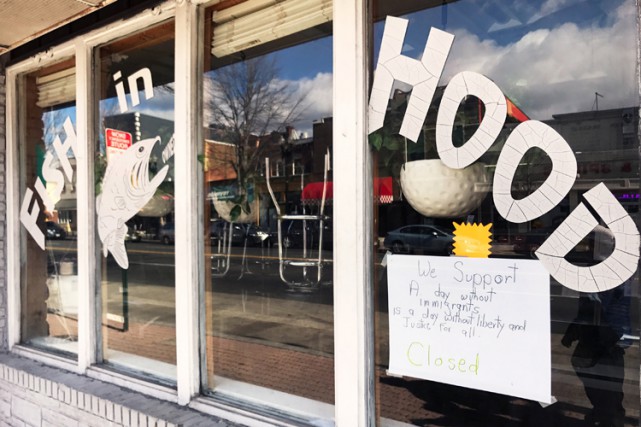 FISH in
HOOD
We Support
A day without
immigrants
is a day without liberty and
Justice for all.
Closed